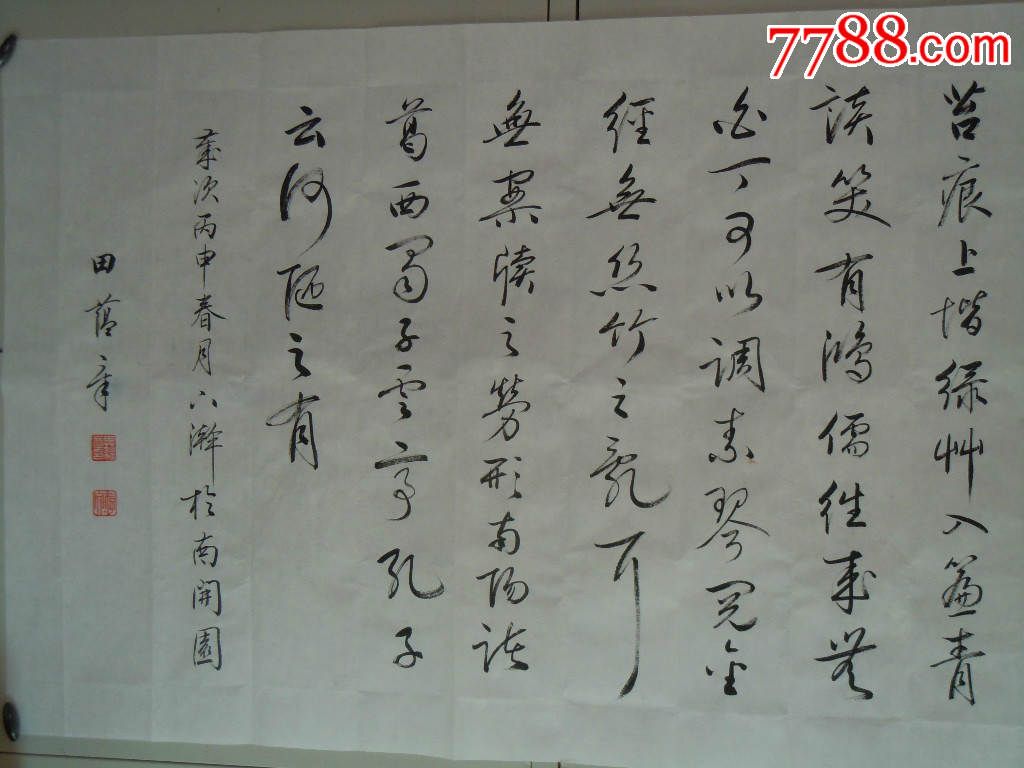 7788.com
苔痕上堦绿艸入簾青
談笑有鴻儒往来無
白丁可以調素琴閱金
經無絲竹之亂耳
無案牘之勞形南陽諸
葛西蜀子雲亭孔子
云何陋之有
歲次丙申春月下澣於南開園
田蘊章